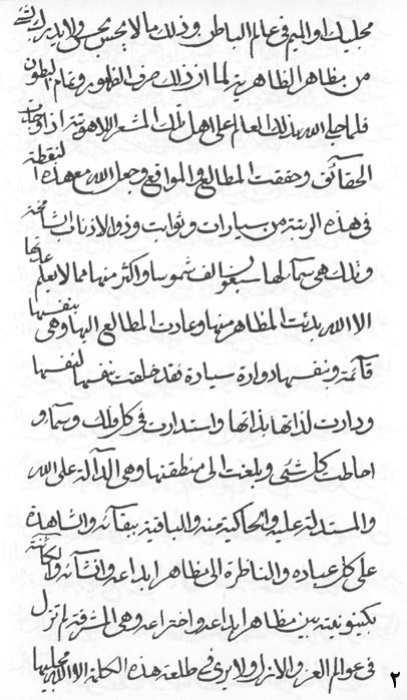 في عالم الباطن وذلك ما لا يحس بحس ولا يدرك
من مظاهر الظاهرية لما ان ذلك صرف الظهور وتمام البطون
فلما تجلى الله بذلك العالم على اهل تلك المشعر اللاهوتية اذا
الحقائق وحققت المطالع والمواقع وجعل الله مع هذه النقطة
في هذه الرتبة من سيارات وثوابت وذو الاذناب
وتلك هي سماء لها سبعون الف شموسا واكثر منها مما لا يعلم
الا الله بدئت المظاهر منها وعادت المطالع اليها وهي بنفسها
قائمة وبنفسها دوارة سيارة فقد خلقت نفسها لنفسها
ودارت لذاتها بذاتها واستدارت في كل فلك وسماء و
احاطت كل شئ وبلغت الى منطقتها وهي الدالة على الله
والمستدلة عليه والحاكية منه والباقية ببقائه والشاهدة
على كل عباده والناظرة الى مظاهر ابداعه وانشائه والكائنة
بكينونيته بين مظاهر ابداعه واختراعه وهي المشرقة لم تزل
في عوالم العز والازل ولا يرى في طلعة هذه الكلمة الا الله مجليها
٢